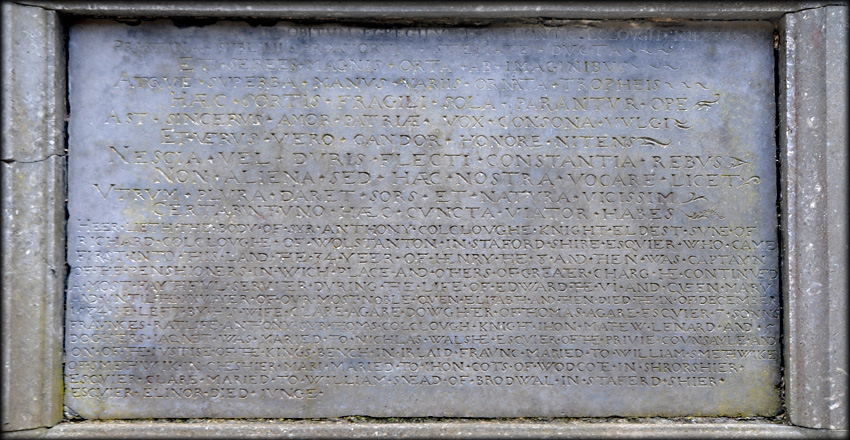 OBITUM
ET · SERIES · MAGNIS · ORTA · AB · IMAGINIBUS
ATQUE · SUPERBA · MANUS · VARIIS · ORNATA · TROPHEIS
HÆC · SORTIS · FRAGILI · SOLA · PARANTVR · OPE
AST · SINCERUS · AMOR · PATRIÆ · VOX · CONSONA · VULGI
ET · VERUS · VERO · CANDOR · HONORE · NITENS
NESCIA · VEL · DURIS · FLECTI · CONSTANTIA · REBUS
NON · ALIENA · SED · HÆC · NOSTRA · VOCARE · LICET
UTRUM · PLURA · DARET · SORS · ET · NATURA · VICISSIM
CERTARNT · UNO · HÆC · CUNCTA · VIATOR · HABES
HEER · LIETH · THE · BODY · OF · SYR · ANTHONY · COLCLOUGHE · KNIGHT · ELDEST · SUNE · OF
RICHARD · COLCLOUGHE · OF · WOLSTANTON · IN · STAFORD · SHIRE · ESCVIER · WHO · CAME
FIRST · INTO · THIS · LAND · THE · 34 · YEER · OF · HENRY · THE · 8 · AND · THEN · WAS · CAPTAYN
OF · THE · PENSHIONERS · IN · WICH · PLACE · AND · OTHERS · OF · GREATER · CHARG · HE · CONTINUED
MOST · FAYTHFULL · SERVITER · DURING · THE · LIFE · OF · EDWARD · THE · VI · AND · QUEEN · MARY
AND · UNTIL · THE · YEER · OF · OUR · MOST · NOBLE · QUEN · ELIZABTH · AND · THEN · DIED · THE · IX · OF · DECEMBER
HE · LEFT · BY · HIS · WIFE · CLARE · AGARE · DOWGHTER · OF · THOMAS · AGARE · ESCVIER · 7 · SONNS
FRAUNCES · RATLIFE · ANTHONY · SYR · THOMS · COLCLOUGH · KNIGHT · IHON · MATEW · LENARD · AND · 5
DOGHTERS · AGNET · WAS · MARIED · TO · NICHLAS · WALSHE · ESCVIER · OF · THE · PRIVIE · COVNSAYLE · AND
ON · OF · THE · IUSTISE · OF · THE · KINGS · BENCH · IN · IRLAID · FRAVNC · MARIED · TO · WILLIAM · SMETHWIKE
OF · SMETHWIK · IN · CHESHIER · MARI · MARIED · TO · IHON · COTS · OF · WODCOTE · IN · SHRORSHIER ·
ESCVIER · CLARE · MARIED · TO · WILLIAM · SNEAD · OF · BRODWAL · IN · STAFERD · SHIER ·
ESCVIER · ELINOR · DIED · IUNGE ·